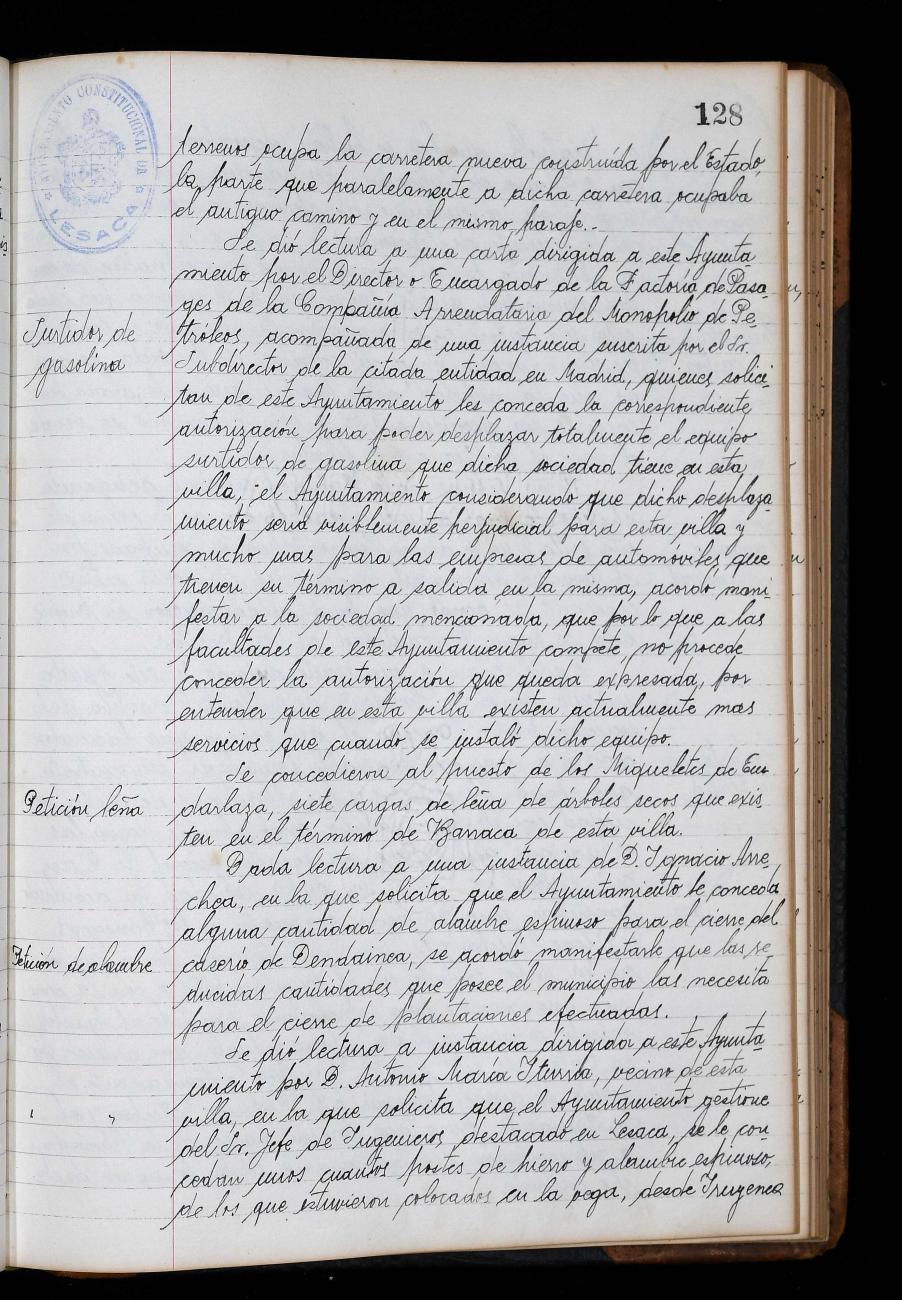 128
AYUNTAMIENTO CONSTITUCIONAL DE
LESACA
terrenos ocupa la carretera nueva construída por el Estado,
la parte que paralelamente a dicha carretera ocupaba
el antiguo camino y en el mismo paraje..
Se dió lectura a una carta dirigida a este Ayunta
miento por el Director o Encargado de la Factoría de Pasa-
ges de la Compañía Arrendataria del Monopolio de Pe-
Surtidor de
gasolina
tróleos, acompañada de una instancia suscrita por el Sr.
Subdirector de la citada entidad en Madrid, quienes solici-
tan de este Ayuntamiento les conceda la correspondiente
autorización para poder desplazar totalmente el equipo
surtidor de gasolina que dicha sociedad tiene en esta
villa, el Ayuntamiento considerando que dicho desplaza-
miento sería visiblemente perjudicial para esta villa y
mucho mas para las empresas de automóviles que
tienen su término a salida en la misma, acordó mani-
festar a la sociedad mencionada, que por lo que a las
facultades de este Ayuntamiento compete, no procede
conceder la autorización que queda expresada, por
entender que en esta villa existen actualmente mas
servicios que cuando se instaló dicho equipo.
Se concedieron al puesto de los Miqueletes de En-
Petición leña
darlaza, siete cargas de leña de árboles secos que exis-
ten en el término de Barraca de esta villa.
Dada lectura a una instancia de D. Ignacio Arre-
chea, en la que solicita que el Ayuntamiento le conceda
alguna cantidad de alambre espinoso para el cierre del
Petición de alambre
caserío de Dendainea, se acordó manifestarle que las re-
ducidas cantidades que posee el municipio las necesita
para el cierre de plantaciones efectuadas.
Se dió lectura a instancia dirigida a este Ayunta-
miento por D. Antonio María Iturria, vecino de esta
" "
villa, en la que solicita que el Ayuntamiento gestione
del Sr. Jefe de Ingenieros, destacado en Lesaca, se le con-
cedan unos cuantos postes de hierro y alambre espinoso,
de los que estuvieron colocados en la vega, desde Iruzenea